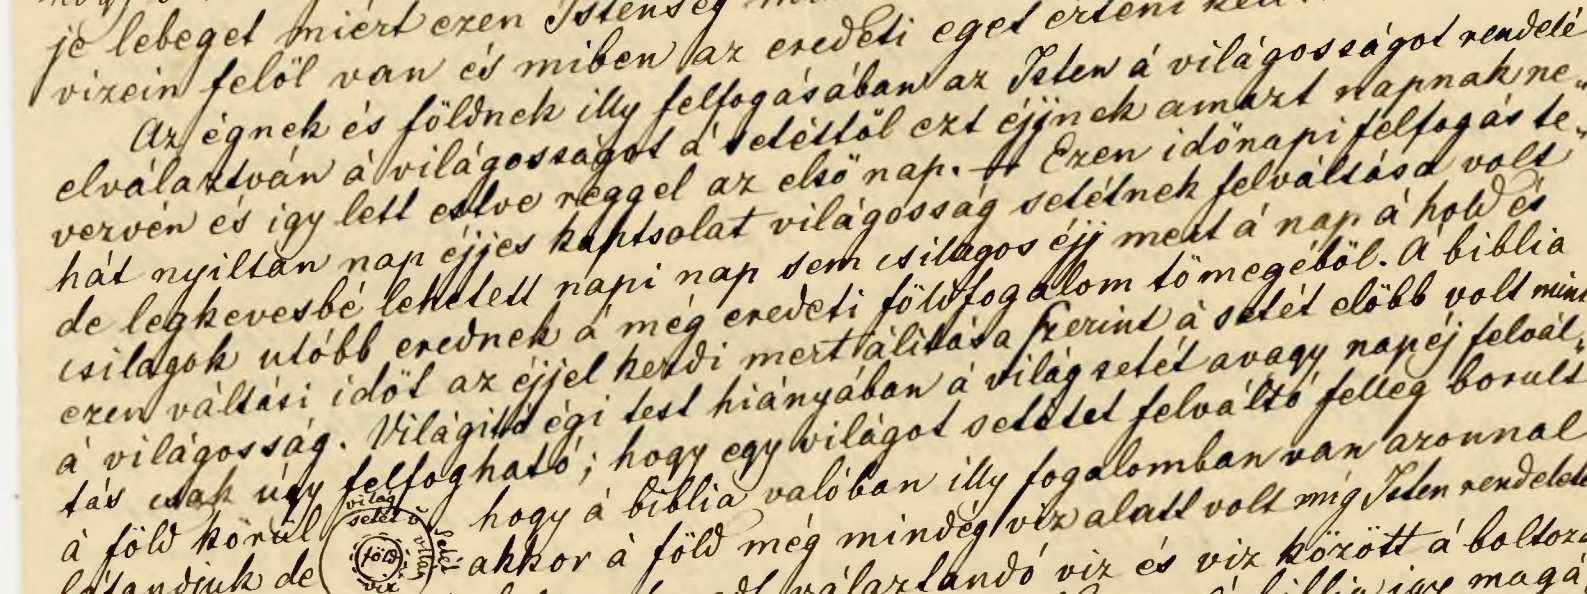 je lebeget miért ezen Istenség
vizein felöl van és miben az eredeti eget érteni kell
Az égnek és földnek illy felfogásában az Isten á világosságot rendelé
elválaztván á világosságot á setéttöl ezt éjjnek amazt napnak ne„
vezvén és igy lett estve reggel az elsö nap. — Ezen idönapi felfogás te„
hát nyiltan nap éjjes kaptsolat világosság setétnek felváltása volt
de legkevesbé lehetett napi nap sem csilagos éjj mert á nap á hold és
csilagok utóbb erednek á még eredeti földfogalom tömegéböl. Á biblia
ezen váltási idöt az éjjel kezdi mert álitása szerint á setét elöbb volt mint
á világosság. Világitó égi test hiányában á világ setét avagy nap éj felvál„
tás csak úgy felfogható; hogy egy világot setétet felváltó felleg borult
á föld körül hogy á biblia valóban illy fogalomban van azonnal
látandjuk de akkor á föld még mindég viz alatt volt mig Isten rendelete
világ
setét
setét
föld
viz
válaztandó viz és viz között á boltoza
biblia igy magá